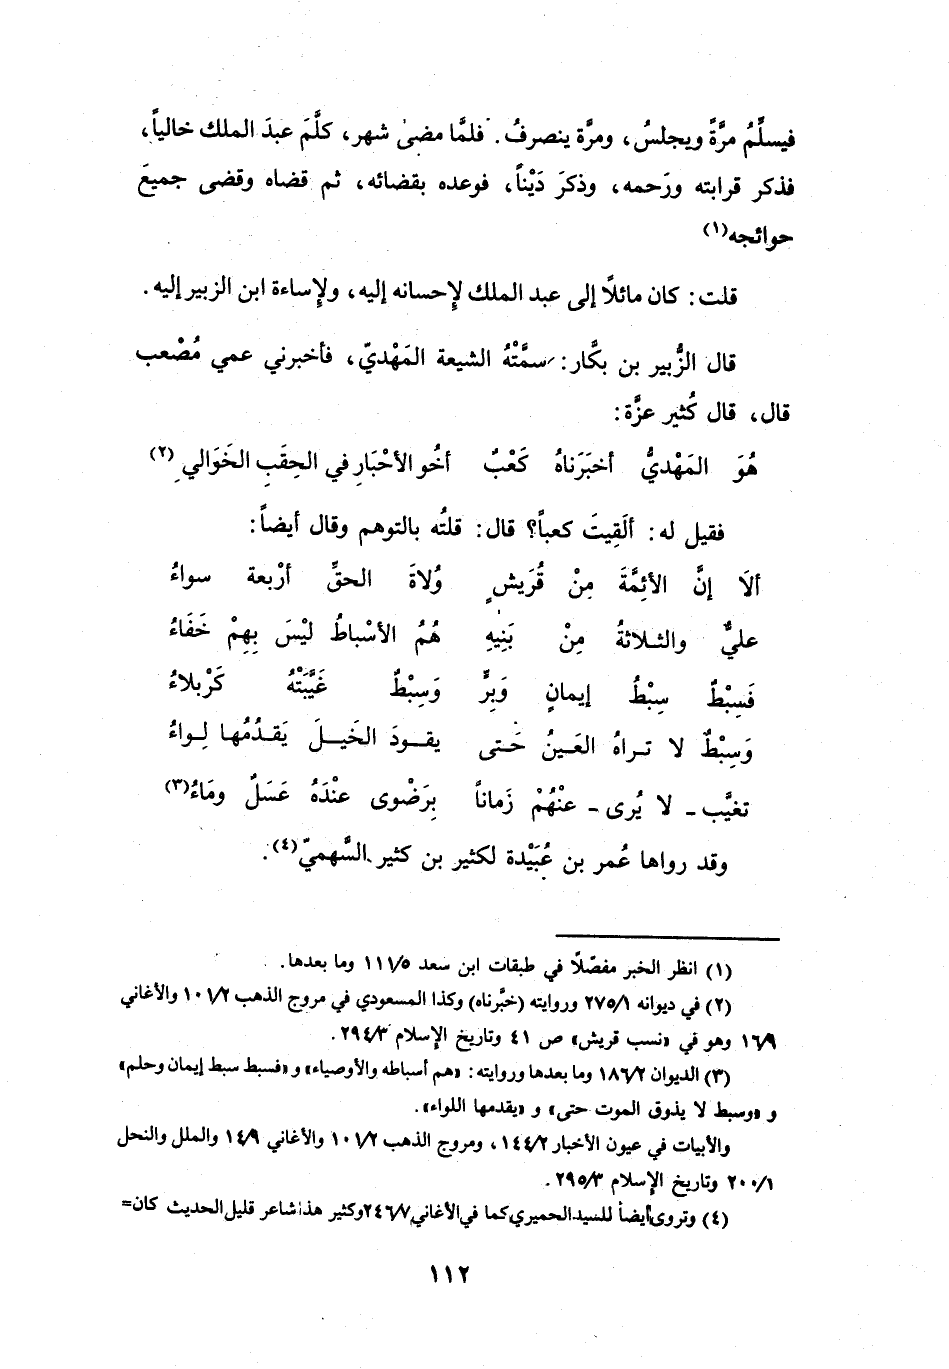 فيسلِّمُ مرَّةً ويجلسُ، ومرَّة ينصرفُ. فلمَّا مضىٰ شهر، كلَّمَ عبدَ الملك خالياً،
فذكر قرابته ورَحمه، وذكرَ دَيْناً، فوعده بقضائه، ثم قضاه وقضى جميعَ
حوائجه(١)
قلت: كان مائلًا إلى عبد الملك لإحسانه إليه، ولإساءة ابن الزبير إليه.
قال الزُّبير بن بكَّار: سمَّتْهُ الشيعة المَهْديّ، فأخبرني عمي مُصْعب
قال، قال كُثير عزَّة:
هُوَ المَهْديُّ أخبَرَناهُ كَعْبٌ أخُو الأحْبَارِ في الحِقَبِ الخَوَالي (٢)
فقيل له: ألَقِيتَ كعباً؟ قال: قلتُه بالتوهم وقال أيضاً:
ألَا إنَّ الأئِمَّةَ مِنْ قُرَيشٍ وُلاةَ الحقِّ أرْبعة سواءُ
عليٌّ والثلاثةُ مِنْ بَنِيهِ هُمُ الأسْباطُ ليْسَ بِهِمْ خَفَاءُ
فَسِبْطٌ سِبْطُ إيمانٍ وَبِرٍّ وَسِبْطٌ غَيَّبَتْهُ كَرْبلاءُ
وَسِبْطٌ لا تراهُ العَينُ حَتى يقودَ الخَيلَ يَقدُمُها لِواءُ
تغيَّب ـ لا يُرى ـ عنْهُمْ زَماناً بِرَضْوى عنْدَهُ عَسَلٌ ومَاءُ(٣)
وقد رواها عُمر بن عُبَيْدة لكثير بن كثير السَّهميّ(٤).
(١) انظر الخبر مفصّلًا في طبقات ابن سعد ١١١/٥ وما بعدها.
(٢) في ديوانه ٢٧٥/١ وروايته (خبَّرناه) وكذا المسعودي في مروج الذهب ١٠١/٢ والأغاني
١٦/٩ وهو في «نسب قريش» ص ٤١ وتاريخ الإسلام ٢٩٤/٣.
(٣) الديوان ١٨٦/٢ وما بعدها وروايته: «هم أسباطه والأوصياء» و«فسبط سبط إيمان وحلم»
و «وسبط لا يذوق الموت حتى» و «يقدمها اللواء».
والأبيات في عيون الأخبار ١٤٤/٢، ومروج الذهب ١٠١/٢ والأغاني ١٤/٩ والملل والنحل
٢٠٠/١ وتاريخ الإسلام ٢٩٥/٣.
(٤) وتروى أيضاً للسيد الحميري كما في الأغاني ٢٤٦/٧ وكثير هذا شاعر قليل الحديث كان=
١١٢